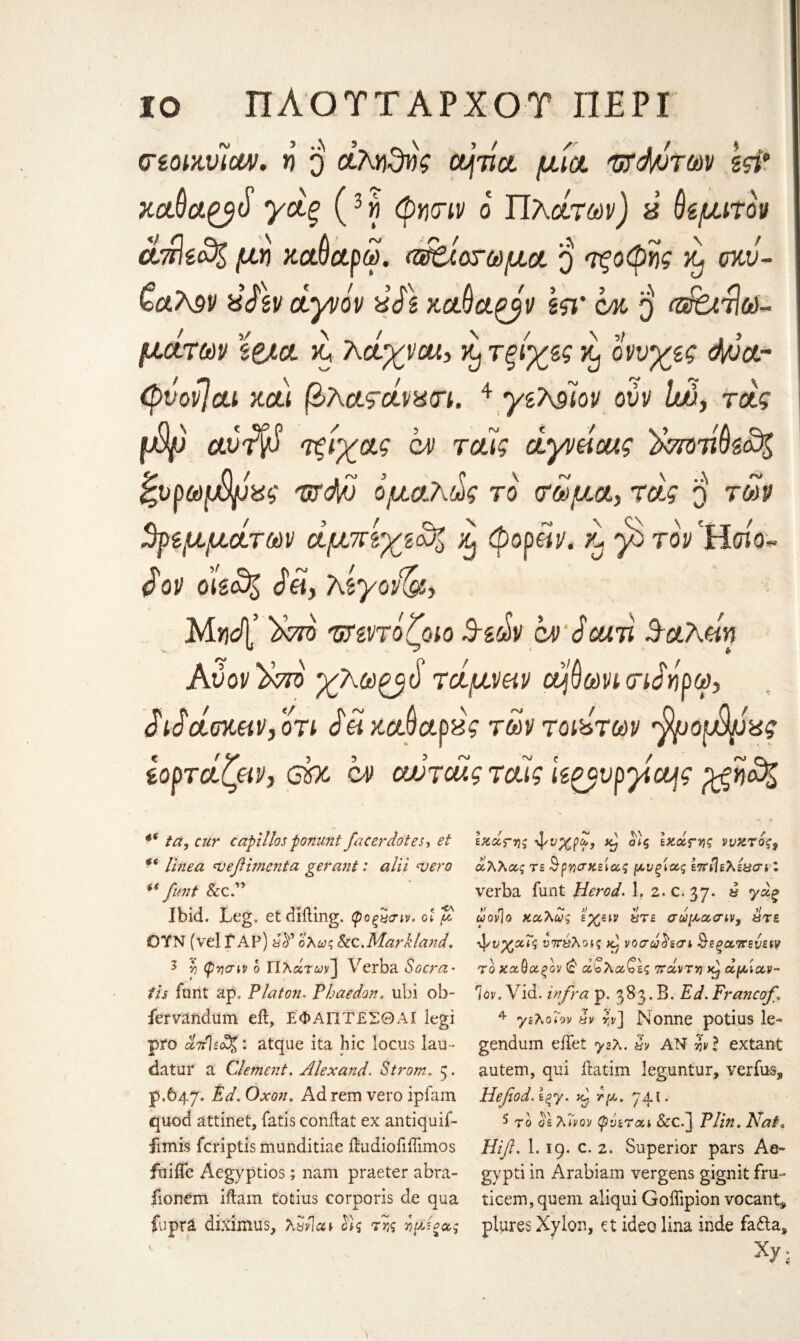 10 ΠΛΟΥΤΑΡΧΟΥ ΠΕΡΙ
σεοικυῖαν. ἡ ϳ ἀληθὴς αἰτία μία πάντων ἐστί·
καθαροῦ γὰρ (³ᾗ φησιν ὁ Πλάτων) ȣ̓ θεμιτὸν
ἅπτεσθαι μὴ καθαρῷ. περίσσωμα δὲ τροφῆς καὶ σκύ-
βαλον ȣ̓δὲν ἁγνὸν ȣ̓δὲ καθαρόν ἐστι· ἐκ δὲ περιττω-
μάτων ἔρια καὶ λάχναι, καὶ τρίχες καὶ ὄνυχες ἀνα-
φύονται καὶ βλαστάνȣσι. ⁴ γελοῖον οὖν ἦν, τὰς
μὲν αὑτῶν τρίχας ἐν ταῖς ἁγνείαις ἀποτίθεσθαι
ξυρωμένȣς πᾶν ὁμαλῶς τὸ σῶμα, τὰς δὲ τῶν
θρεμμάτων ἀμπέχεσθαι καὶ φορεῖν. καὶ γὰρ τὸν Ἡσίο-
δον οἴεσθαι δεῖ, λέγοντα,
Μηδ' ἀπὸ πεντόζοιο θεῶν ἐν δαιτὶ θαλείῃ
Αὖον ἀπὸ χλωροῦ τάμνειν αἴθωνι σιδήρῳ,
διδάσκειν, ὅτι δεῖ καθαρȣ̀ς τῶν τοιȣ́των γενομένȣς
ἑορτάζειν, οὐκ ἐν αὐταῖς ταῖς ἱερουργίαις χρῆσθαι
“ ta, cur capillos ponunt sacerdotes, et
“ linea vestimenta gerant: alii vero
“ sunt &c.”
Ibid. Leg. et disting. φορȣ͂σιν. οἱ μ̂
ΟΥΝ (vel ΓΑΡ) ȣ̓δ' ὅλως &c. Markland.
³ ᾗ φησιν ὁ Πλάτων] Verba Socra-
tis sunt ap. Platon. Phaedon. ubi ob-
servandum est, ΕΦΑΠΤΕΣΘΑΙ legi
pro ἅπτεσθαι: atque ita hic locus lau-
datur a Clement. Alexand. Strom. 5.
p. 647. Ed. Oxon. Ad rem vero ipsam
quod attinet, satis constat ex antiquis-
simis scriptis munditiae studiosissimos
fuisse Aegyptios; nam praeter abra-
sionem istam totius corporis de qua
supra diximus, λȣ͂νται δὶς τῆς ἡμέρας
ἑκάστης ψυχρῷ, καὶ δὶς ἑκάστης νυκτός,
ἄλλας τε θρησκείας μυρίας ἐπιτελέȣσι:
verba sunt Herod. l. 2. c. 37. ȣ̓ γὰρ
ᾤοντο καλῶς ἔχειν ȣ̓́τε σώμασιν, ȣ̓́τε
ψυχαῖς ὑπȣ́λοις καὶ νοσώδεσι θεραπεύειν
τὸ καθαρὸν καὶ ἀβλαβὲς πάντῃ καὶ ἀμίαν-
τον. Vid. infra p. 383. B. Ed. Francof.
⁴ γελοῖον ȣ̓͂ν ἦν] Nonne potius le-
gendum esset γελ. ȣ̓͂ν ΑΝ ἦν? extant
autem, qui statim leguntur, versus,
Hesiod. ἐργ. καὶ ἡμ. 741.
⁵ τὸ δὲ λίνον φύεται &c.] Plin. Nat.
Hist. l. 19. c. 2. Superior pars Ae-
gypti in Arabiam vergens gignit fru-
ticem, quem aliqui Gossipion vocant,
plures Xylon, et ideo lina inde facta,
Xy-